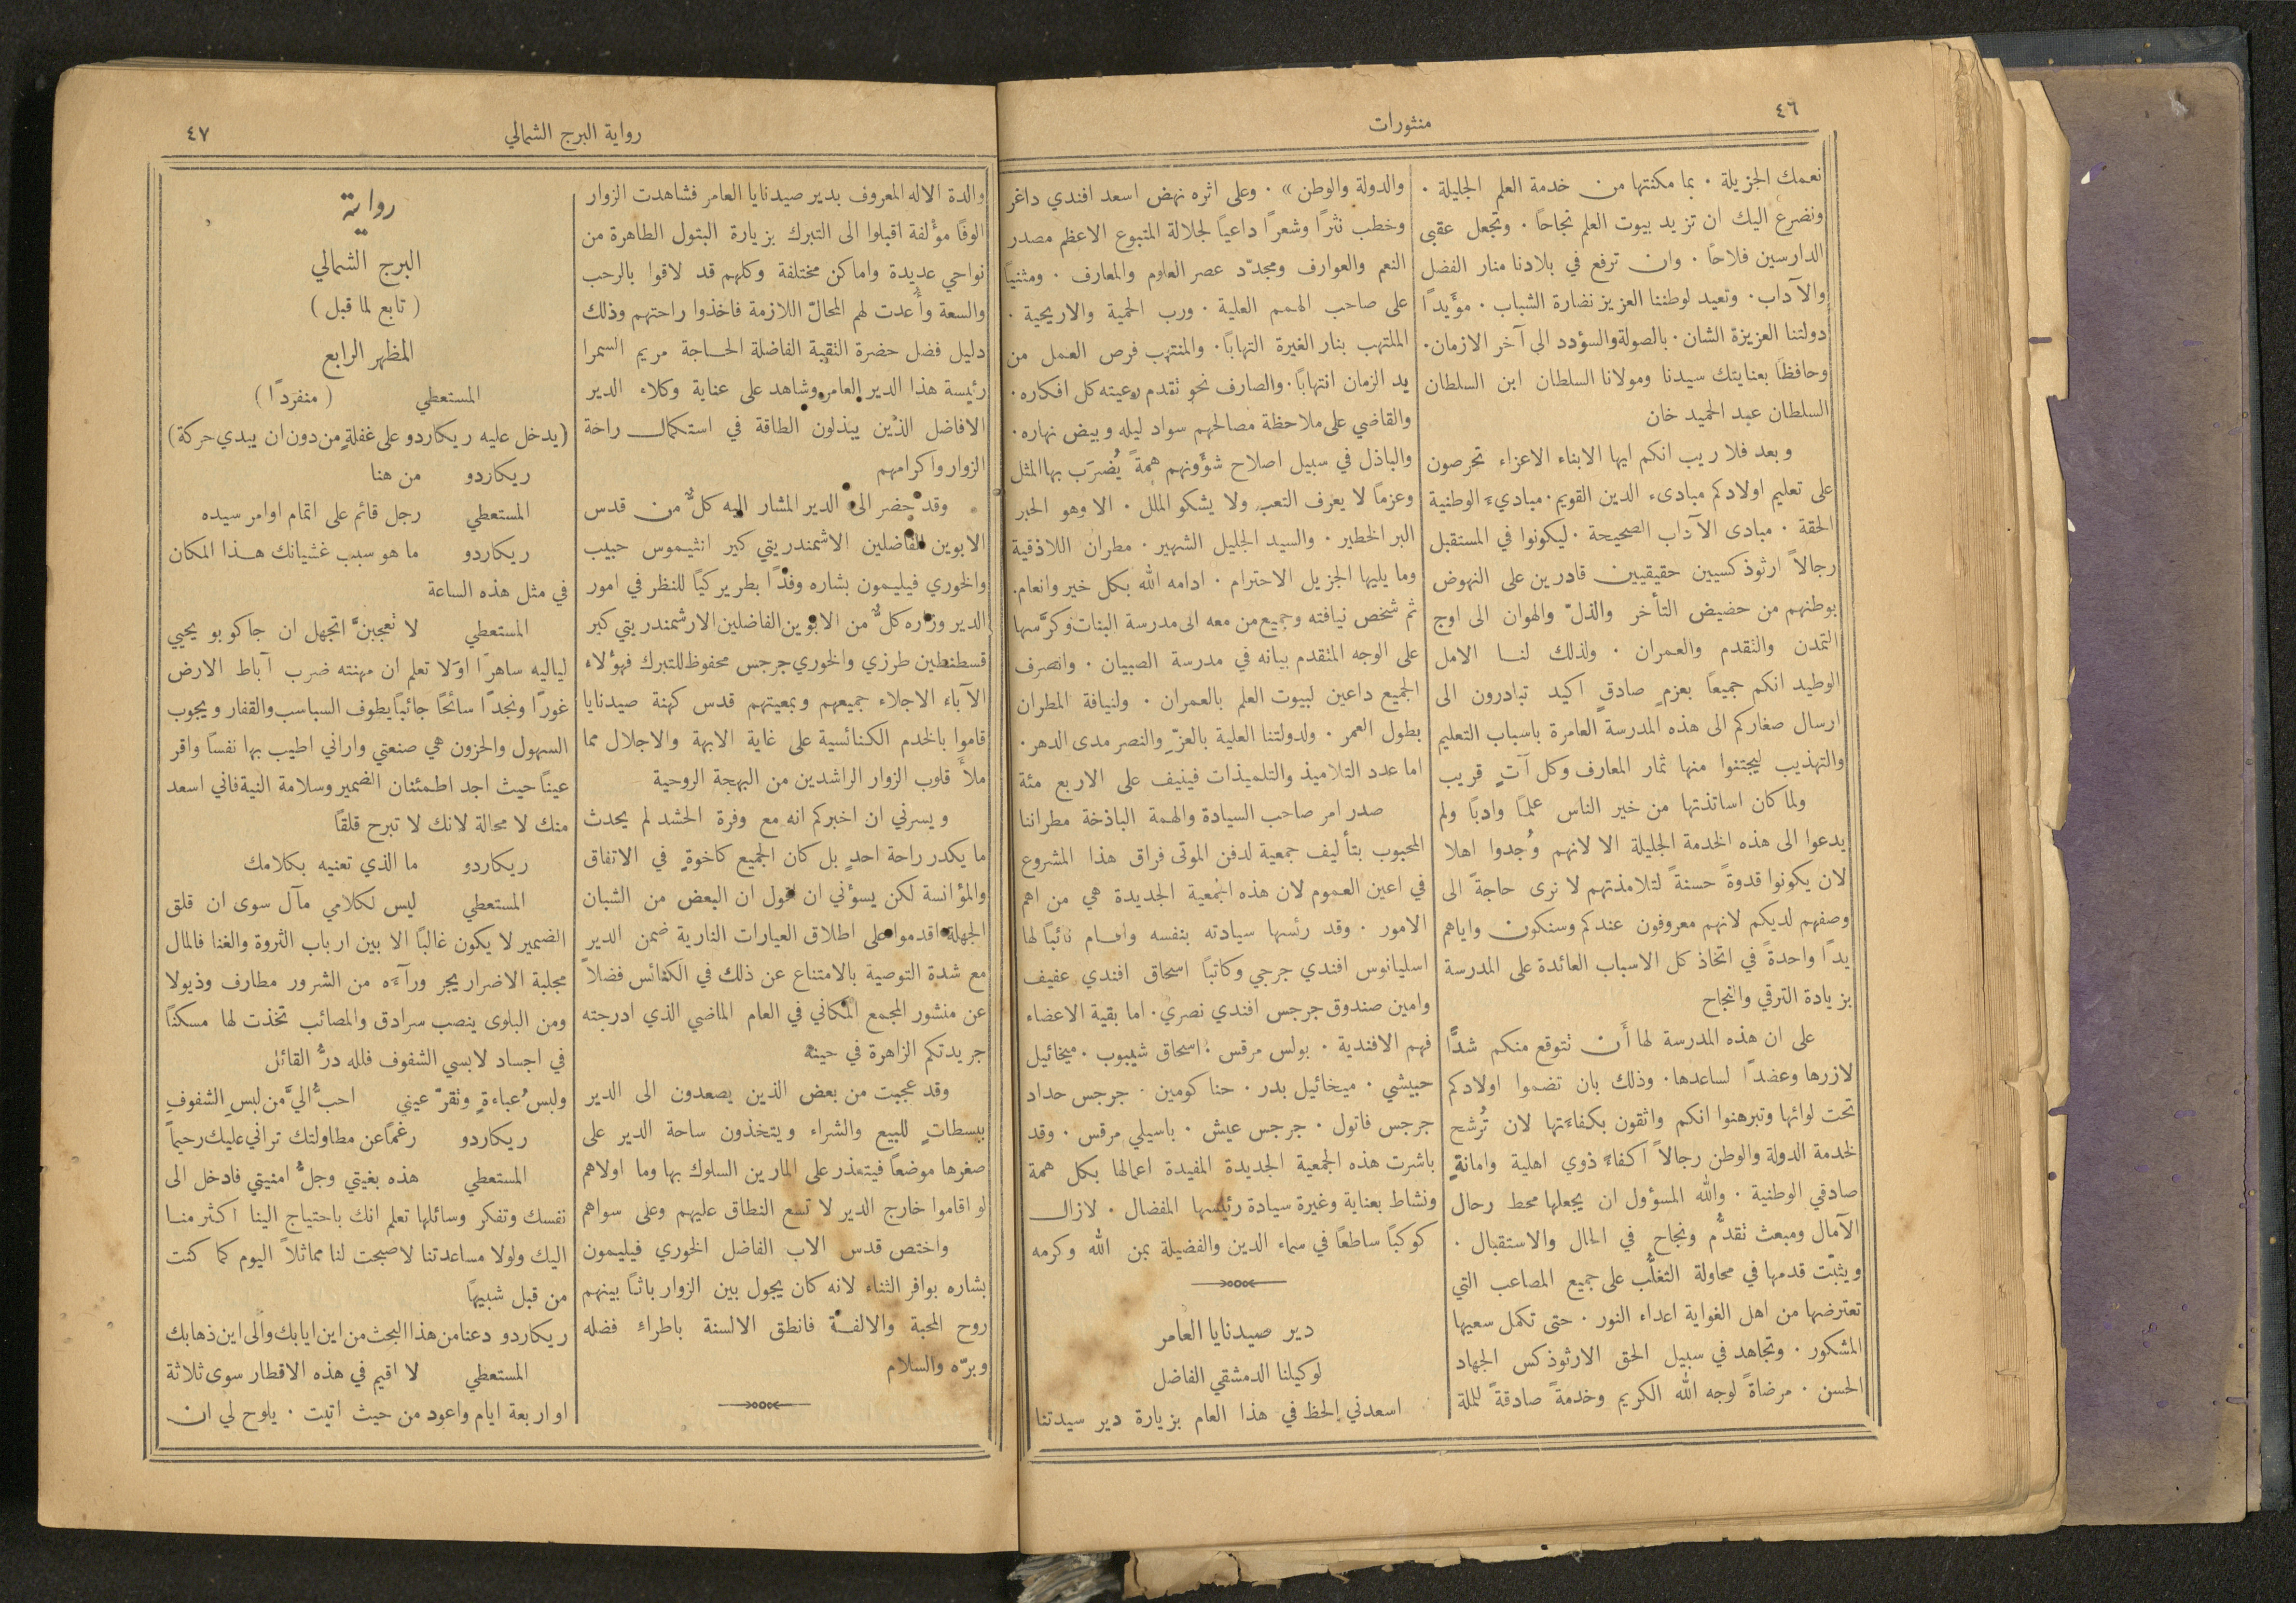 ٤٦
منثورات
نعمك الجزيلة . بما مكنتها من خدمة العلم الجليلة .
ونضرع اليك ان تزيد بيوت العلم نجاحًا . وتجعل عقبى
الدارسين فلاحًا . وان ترفع في بلادنا منار الفضل
والآداب . وتعيد لوطننا العزيز نضارة الشباب . مؤَيدًا
دولتنا العزيزة الشان . بالصولة والسؤدد الى آخر الازمان .
وحافظًا بعنايتك سيدنا ومولانا السلطان ابن السلطان
السلطان عبد الحميد خان
وبعد فلا ريب انكم ايها الابناء الاعزاء تحرصون
على تعليم اولادكم مبادىء الدين القويم . مبادىء الوطنية
الحقة . مبادى الآداب الصحيحة . ليكونوا في المستقبل
رجالاً ارثوذكسيين حقيقيين قادرين على النهوض
بوطنهم من حضيض التأخر والذلّ والهوان الى اوج
التمدن والتقدم والعمران . ولذلك لنا الامل
الوطيد انكم جميعًا بعزمٍ صادقٍ اكيد تبادرون الى
ارسال صغاركم الى هذه المدرسة العامرة باسباب التعليم
والتهذيب ليجتنوا منها ثمار المعارف وكل آتٍ قريب
ولما كان اساتذتها من خير الناس علمًا وادبًا ولم
يدعوا الى هذه الخدمة الجليلة الا لانهم وُجدوا اهلا
لان يكونوا قدوةً حسنةً لتلامذتهم لا نرى حاجةً الى
وصفهم لديكم لانهم معروفون عندكم وسنكون واياهم
يدًا واحدةً في اتخاذ كل الاسباب العائدة على المدرسة
بزيادة الترقي والنجاح
على ان هذه المدرسة لها أَن تتوقع منكم شدًّا
لازرها وعضدًا لساعدها . وذلك بان تضموا اولادكم
تحت لوائها وتبرهنوا انكم واثقون بكفاءتها لان تُرشح
لخدمة الدولة والوطن رجالاً اكفاءً ذوي اهلية وامانةٍ
صادقي الوطنية . والله المسؤول ان يجعلها محط رحال
الآمال ومبعث تقدُّم ونجاح في الحال والاستقبال .
ويثبّت قدمها في محاولة التغلُّب على جميع المصاعب التي
تعترضها من اهل الغواية اعداء النور . حتى تكمل سعيها
المشكور . وتجاهد في سبيل الحق الارثوذكس الجهاد
الحسن . مرضاةً لوجه الله الكريم وخدمةً صادقةً للملة
والدولة والوطن » . وعلى اثره نهض اسعد افندي داغر
وخطب نثرًا وشعرًا داعيًا لجلالة المتبوع الاعظم مصدر
النعم والعوارف ومجدّد عصر العلوم والمعارف . ومثنيًا
على صاحب الهمم العلية . ورب الحمية والاريحية .
الملتهب بنار الغيرة التهابًا . والمنتهب فرص العمل من
يد الزمان انتهابًا . والصارف نحو تقدم رعيته كل افكاره .
والقاضي على ملاحظة مصالحهم سواد ليله وبيض نهاره .
والباذل في سبيل اصلاح شؤَونهم همةً يُضرَب بها المثل
وعزمًا لا يعرف التعب ولا يشكو الملل . الا وهو الحبر
البر الخطير . والسيد الجليل الشهير . مطران اللاذقية
وما يليها الجزيل الاحترام . ادامه الله بكل خير وانعام .
ثم شخص نيافته وجميع من معه الى مدرسة البنات وكرَّسها
على الوجه المتقدم بيانه في مدرسة الصبيان . وانصرف
الجميع داعين لبيوت العلم بالعمران . ولنيافة المطران
بطول العمر . ولدولتنا العلية بالعزّ والنصر مدى الدهر .
اما عدد التلاميذ والتلميذات فينيف على الاربع مئة
صدر امر صاحب السيادة والهمة الباذخة مطراننا
المحبوب بتأليف جمعية لدفن الموتى فراق هذا المشروع
في اعين العموم لان هذه الجمعية الجديدة هي من اهم
الامور . وقد رئسها سيادته بنفسه واقام نائبًا لها
اسليانوس افندي جرجي وكاتبًا اسحاق افندي عفيف
وامين صندوق جرجس افندي نصري . اما بقية الاعضاء
فهم الافندية . بولس مرقس . اسحاق شيبوب . ميخائيل
حبيشي . ميخائيل بدر . حنا كومين . جرجس حداد
جرجس فاتول . جرجس عيش . باسيلي مرقس . وقد
باشرت هذه الجمعية الجديدة المفيدة اعمالها بكل همة
ونشاط بعناية وغيرة سيادة رئيسها المفضال . لازال
كوكبًا ساطعًا في سماء الدين والفضيلة بمن الله وكرمه
دير صيدنايا العامر
لوكيلنا الدمشقي الفاضل
اسعدني الحظ في هذا العام بزيارة دير سيدتنا
رواية البرج الشمالي
٤٧
والدة الاله المعروف بدير صيدنايا العامر فشاهدت الزوار
الوفًا مؤَلفة اقبلوا الى التبرك بزيارة البتول الطاهرة من
نواحي عديدة واماكن مختلفة وكلهم قد لاقوا بالرحب
والسعة وأُعدت لهم المحالّ اللازمة فاخذوا راحتهم وذلك
دليل فضل حضرة التقية الفاضلة الحاجة مريم السمرا
رئيسة هذا الدير العامر وشاهد على عناية وكلاء الدير
الافاضل الذين يبذلون الطاقة في استكمال راحة
الزوار واكرامهم
وقد حضر الى الدير المشار اليه كلٌّ من قدس
الابوين الفاضلين الاشمندريتي كير انثيموس حبيب
والخوري فيليمون بشاره وفدًا بطريركيًا للنظر في امور
الدير وزاره كلٌّ من الابوين الفاضلين الارشمندريتي كير
قسطنطين طرزي والخوري جرجس محفوظ للتبرك فهؤلاء
الآباء الاجلاء جميعهم وبمعيتهم قدس كهنة صيدنايا
قاموا بالخدم الكنائسية على غاية الابهة والاجلال مما
ملأَ قلوب الزوار الراشدين من البهجة الروحية
ويسرني ان اخبركم انه مع وفرة الحشد لم يحدث
ما يكدر راحة احدٍ بل كان الجميع كاخوةٍ في الاتفاق
والمؤانسة لكن يسؤني ان اقول ان البعض من الشبان
الجهلة اقدموا على اطلاق العيارات النارية ضمن الدير
مع شدة التوصية بالامتناع عن ذلك في الكنائس فضلاً
عن منشور المجمع المكاني في العام الماضي الذي ادرجته
جريدتكم الزاهرة في حينه
وقد عجبت من بعض الذين يصعدون الى الدير
ببسطاتٍ للبيع والشراء ويتخذون ساحة الدير على
صغرها موضعًا فيتعذر على المارين السلوك بها وما اولاهم
لو اقاموا خارج الدير لا تسع النطاق عليهم وعلى سواهم
واختص قدس الاب الفاضل الخوري فيليمون
بشاره بوافر الثناء لانه كان يجول بين الزوار باثًا بينهم
روح المحبة والالفة فانطق الالسنة باطراءِ فضله
وبرّه والسلام
رواية
البرج الشمالي
( تابع لما قبل )
المظهر الرابع
المستعطي ( منفردًا )
( يدخل عليه ريكاردو على غفلةٍ من دون ان يبدي حركة )
ريكاردو من هنا
المستعطي رجل قائم على اتمام اوامر سيده
ريكاردو ما هو سبب غشيانك هذا المكان
في مثل هذه الساعة
المستعطي لا تعجبنَّ اتجهل ان جاكوبو يحيي
لياليه ساهرًا اوَلا تعلم ان مهنته ضرب آباط الارض
غورًا ونجدًا سائحًا جائبًا يطوف السباسب والقفار ويجوب
السهول والحزون هي صنعتي واراني اطيب بها نفسًا واقر
عينًا حيث اجد اطمئنان الضمير وسلامة النية فاني اسعد
منك لا محالة لانك لا تبرح قلقًا
ريكاردو ما الذي تعنيه بكلامك
المستعطي ليس لكلامي مآل سوى ان قلق
الضمير لا يكون غالبًا الا بين ارباب الثروة والغنا فالمال
مجلبة الاضرار يجر ورآءه من الشرور مطارف وذيولا
ومن البلوى ينصب سرادق والمصائب تخذت لها مسكنًا
في اجساد لابسي الشفوف فلله درُّ القائل
ولبسُ عباءةٍ وتقرّ عيني احبُّ اليَّ من لبسِ الشفوفِ
ريكاردو رغمًا عن مطاولتك تراني عليك رحيمًا
المستعطي هذه بغيتي وجلُّ امنيتي فادخل الى
نفسك وتفكر وسائلها تعلم انك باحتياج الينا اكثر منا
اليك ولولا مساعدتنا لاصبحت لنا مماثلاً اليوم كما كنت
من قبل شبيهًا
ريكاردو دعنا من هذا البحث من اين ايابك والى اين ذهابك
المستعطي لا اقيم في هذه الاقطار سوى ثلاثة
او اربعة ايام واعود من حيث اتيت . يلوح لي ان